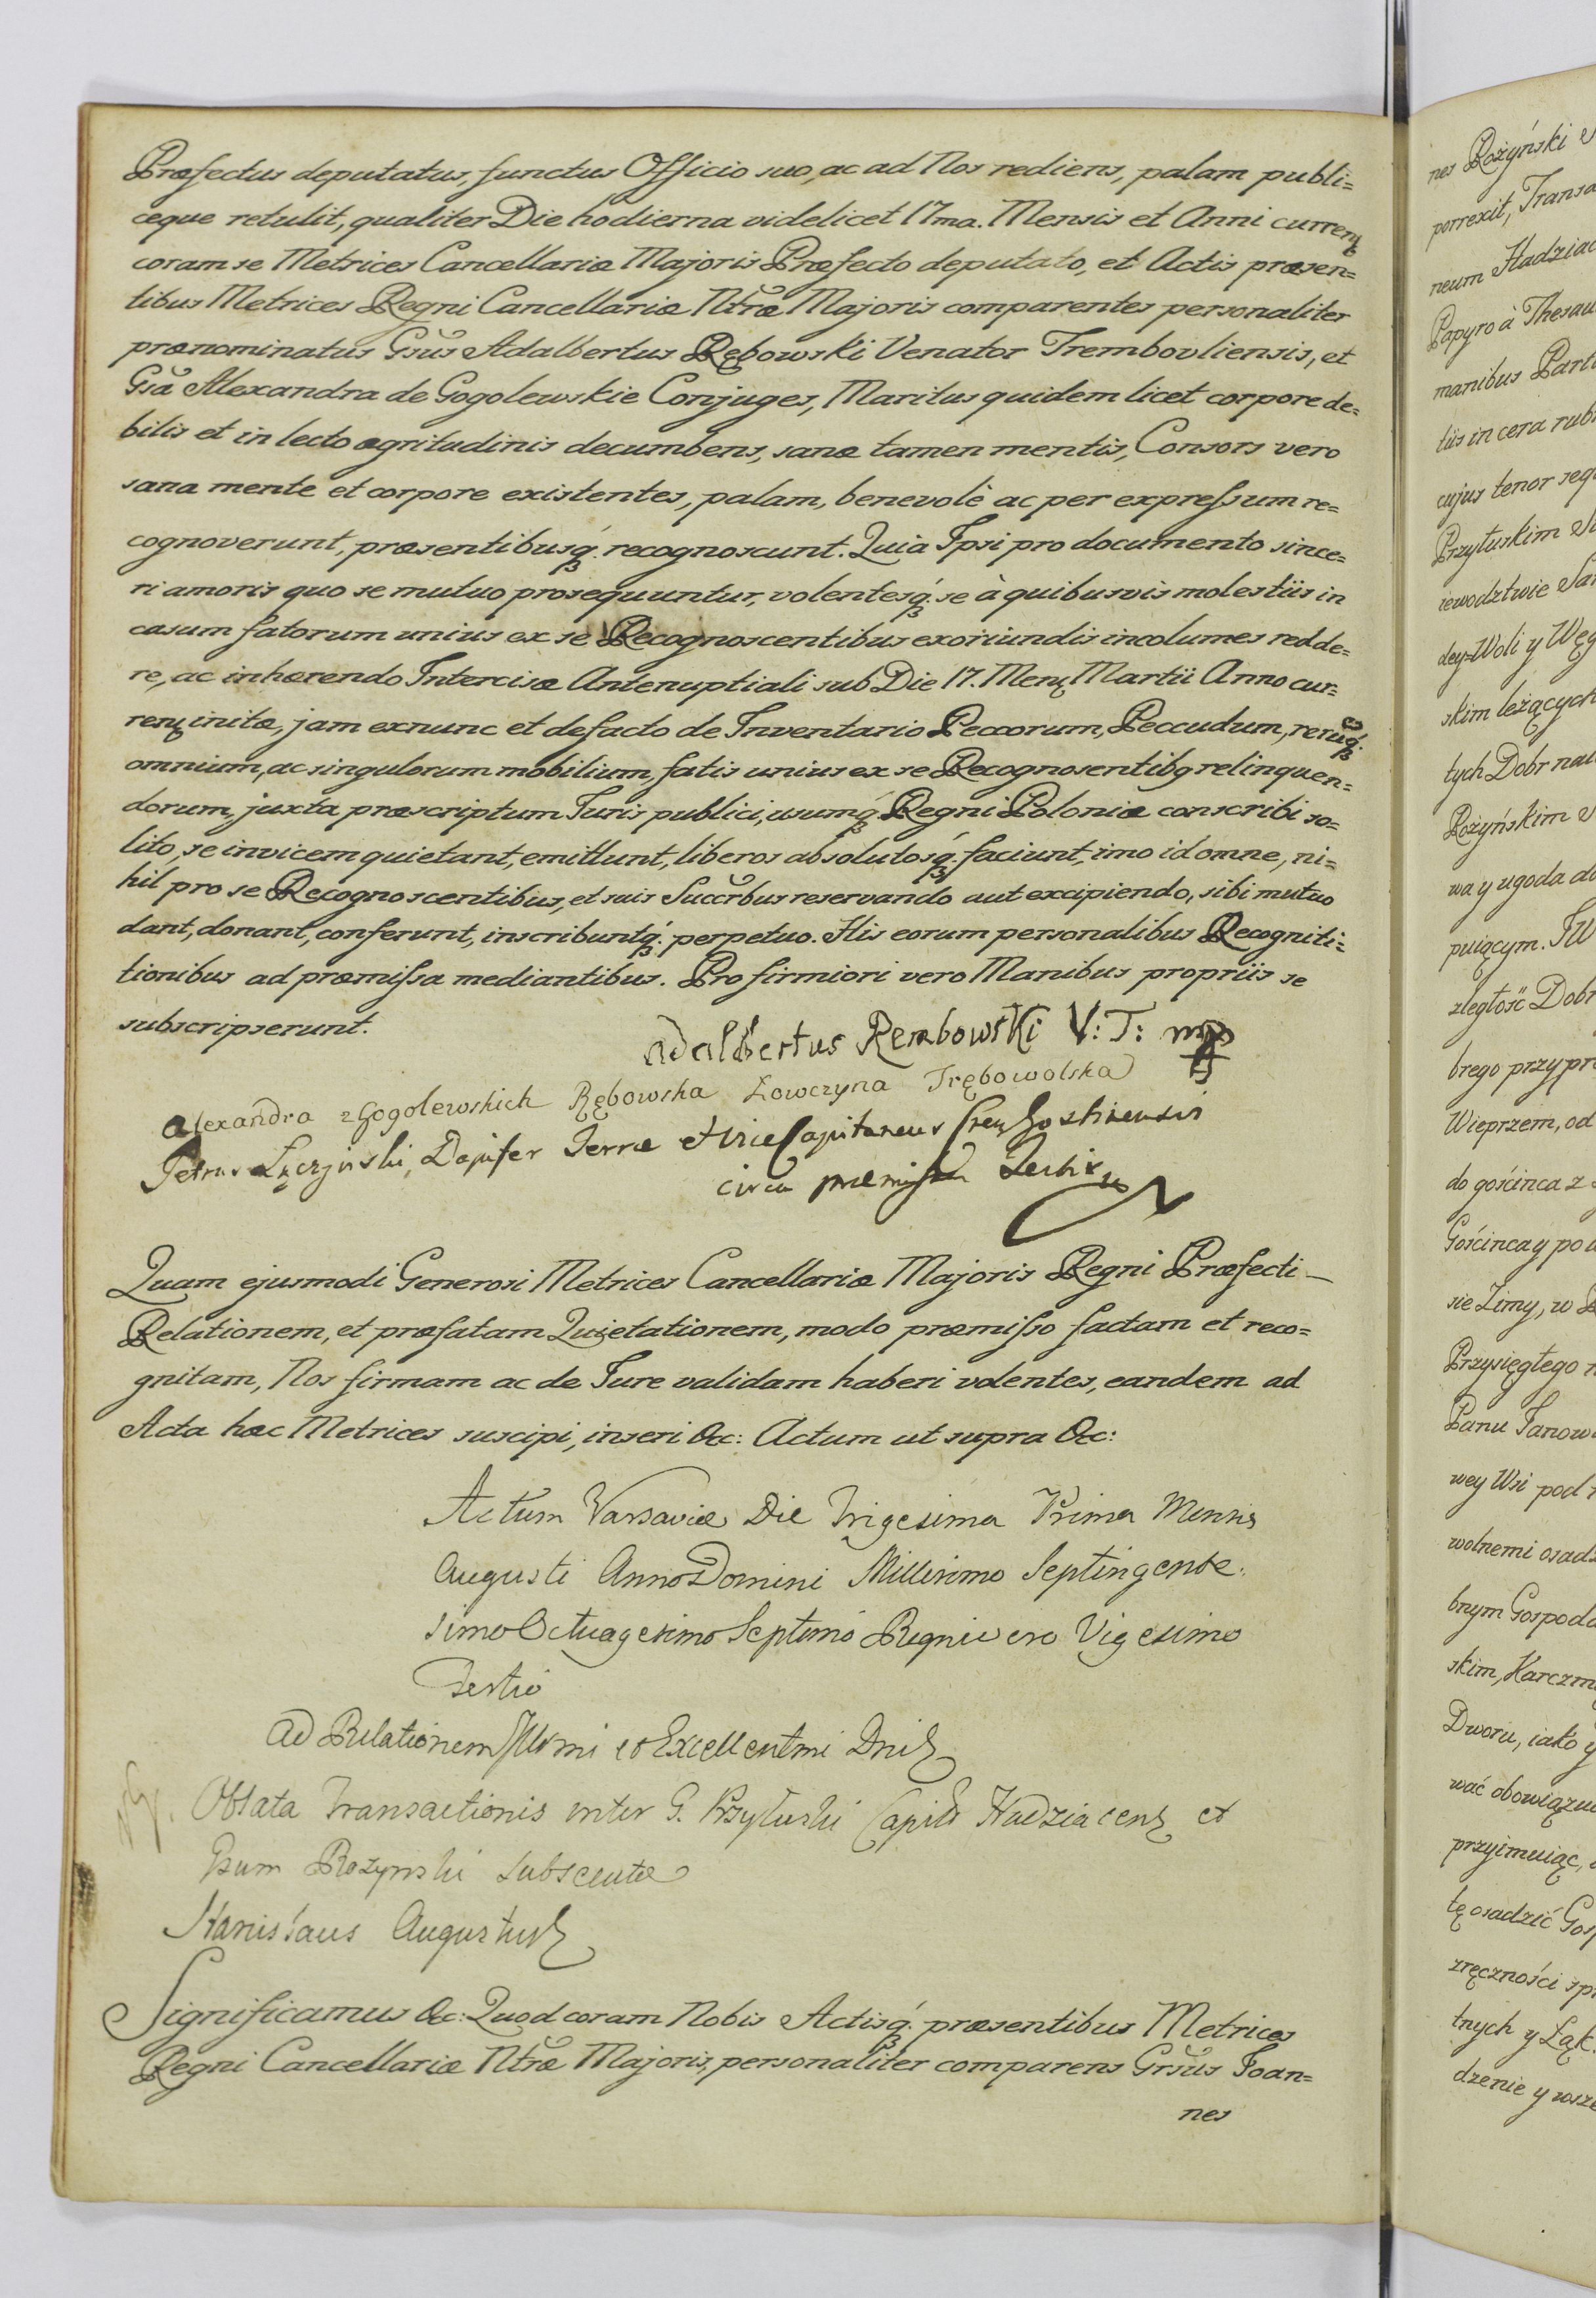 Præfectus deputatus, functus Officio suo, ac ad Nos rediens, palam publi=
ceque retulit, qualiter Die hodierna videlicet 17ma. Mensis et Anni curren
coram se Metrices Cancellariæ Majoris Præfecto deputato, et Actis præsen=
tibus Metrices Regni Cancellariæ Ntræ Majoris comparentes personaliter
prænominatus Gsus Adalbertus Rębowski Venator Trembovliensis, et
Gsa Alexandra de Gogolewskie Conjuges, Maritus quidem licet corpore de=
bilis et in lecto ægritudinis decumbens, sanæ tamen mentis, Consors vero
sana mente et corpore existentes, palam, benevolè ac per expressum re=
cognoverunt, præsentibusq́. recognoscunt. Quia Ipsi pro documento since=
ri amoris quo se mutuo prosequuntur, volentesq́. se à quibusvis molestiis in
casum fatorum unius ex se Recognoscentibus exoriundis incolumes redde=
re, ac inhærendo Intercisæ Antenuptiali sub Die 17. Mens Martii Anno cur=
ren initæ, jam exnunc et defacto de Inventario Peccorum, Peccudum, rerūq́.
omnium, ac singulorum mobilium, fatis unius ex se Recognosentibq relinquen=
dorum, juxta præscriptum Juris publici, usumq́ Regni Poloniæ conscribi so=
lito, se invicem quietant, emittunt, liberos absolutosq́. faciunt, imo id omne, ni=
hil pro se Recognoscentibus, et suis Succrbus reservando aut excipiendo, sibi mutuo
dant, donant, conferunt, inscribuntq́. perpetuo. His eorum personalibus Recogniti=
tionibus ad præmissa mediantibus. Pro firmiori vero Manibus propriis se
subscripserunt.
Adalbertus Rembowski V: T: mp
Alexandra z Gogolewskich Rębowska Łowczyna Trębowolska
Petrus Łączyński, Dapifer Terræ et Vice Capitaneus Gostinensis
circa præmissa Testis
Quam ejusmodi Generosi Metrices Cancellariæ Majoris Regni Præfecti —
Relationem, et præfatam Quietationem, modo præmisso factam et reco=
gnitam, Nos firmam ac de Jure validam haberi volentes, eandem ad
Acta hæc Metrices suscipi, inseri &c: Actum ut supra &c:
Actum Varsaviæ Die Trigesima Prima Mensis
Augusti Anno Domini Millesimo Septingente.
simo Octuagesimo Septimo Regni vero Vigesimo
Tertio
Ad Relationem Illmi et Excellentmi Dni
Oblata Transactionis inter G. Przyłuski Capit Hadziacens et
Gsum Rożynski subsceutæ
Stanislaus Augustus
Significamus &c: Quod coram Nobis Actisq́. præsentibus Metrices
Regni Cancellariæ Ntræ Majoris, personaliter comparens Grsus Joan=
nes
nes Rożyński
porrexit, Transa
neum Hadziac
Papyro à Thesau
manibus Parti
tiis in cera rub
cujus tenor sequ
Przyłuskim
iewodztwie San
dey=Woli y Węg
skim leżących
tych Dobr
Rożyńskim
wa y ugoda do
puiącym. JW
zległość Dobr
brego przypr
Wieprzem, od
do gościnca z
Gościnca y po
sie Zimy, w
Przysięgłego
Panu Janow
wey Wsi pod
wolnemi osad
bnym Gospoda
skim, Karczm
Dworu, iako y
wać obowiązu
przyimuiąc,
tę osadzić Gos
zręczności sp
tnych y Łąk.
dzenie y wsze